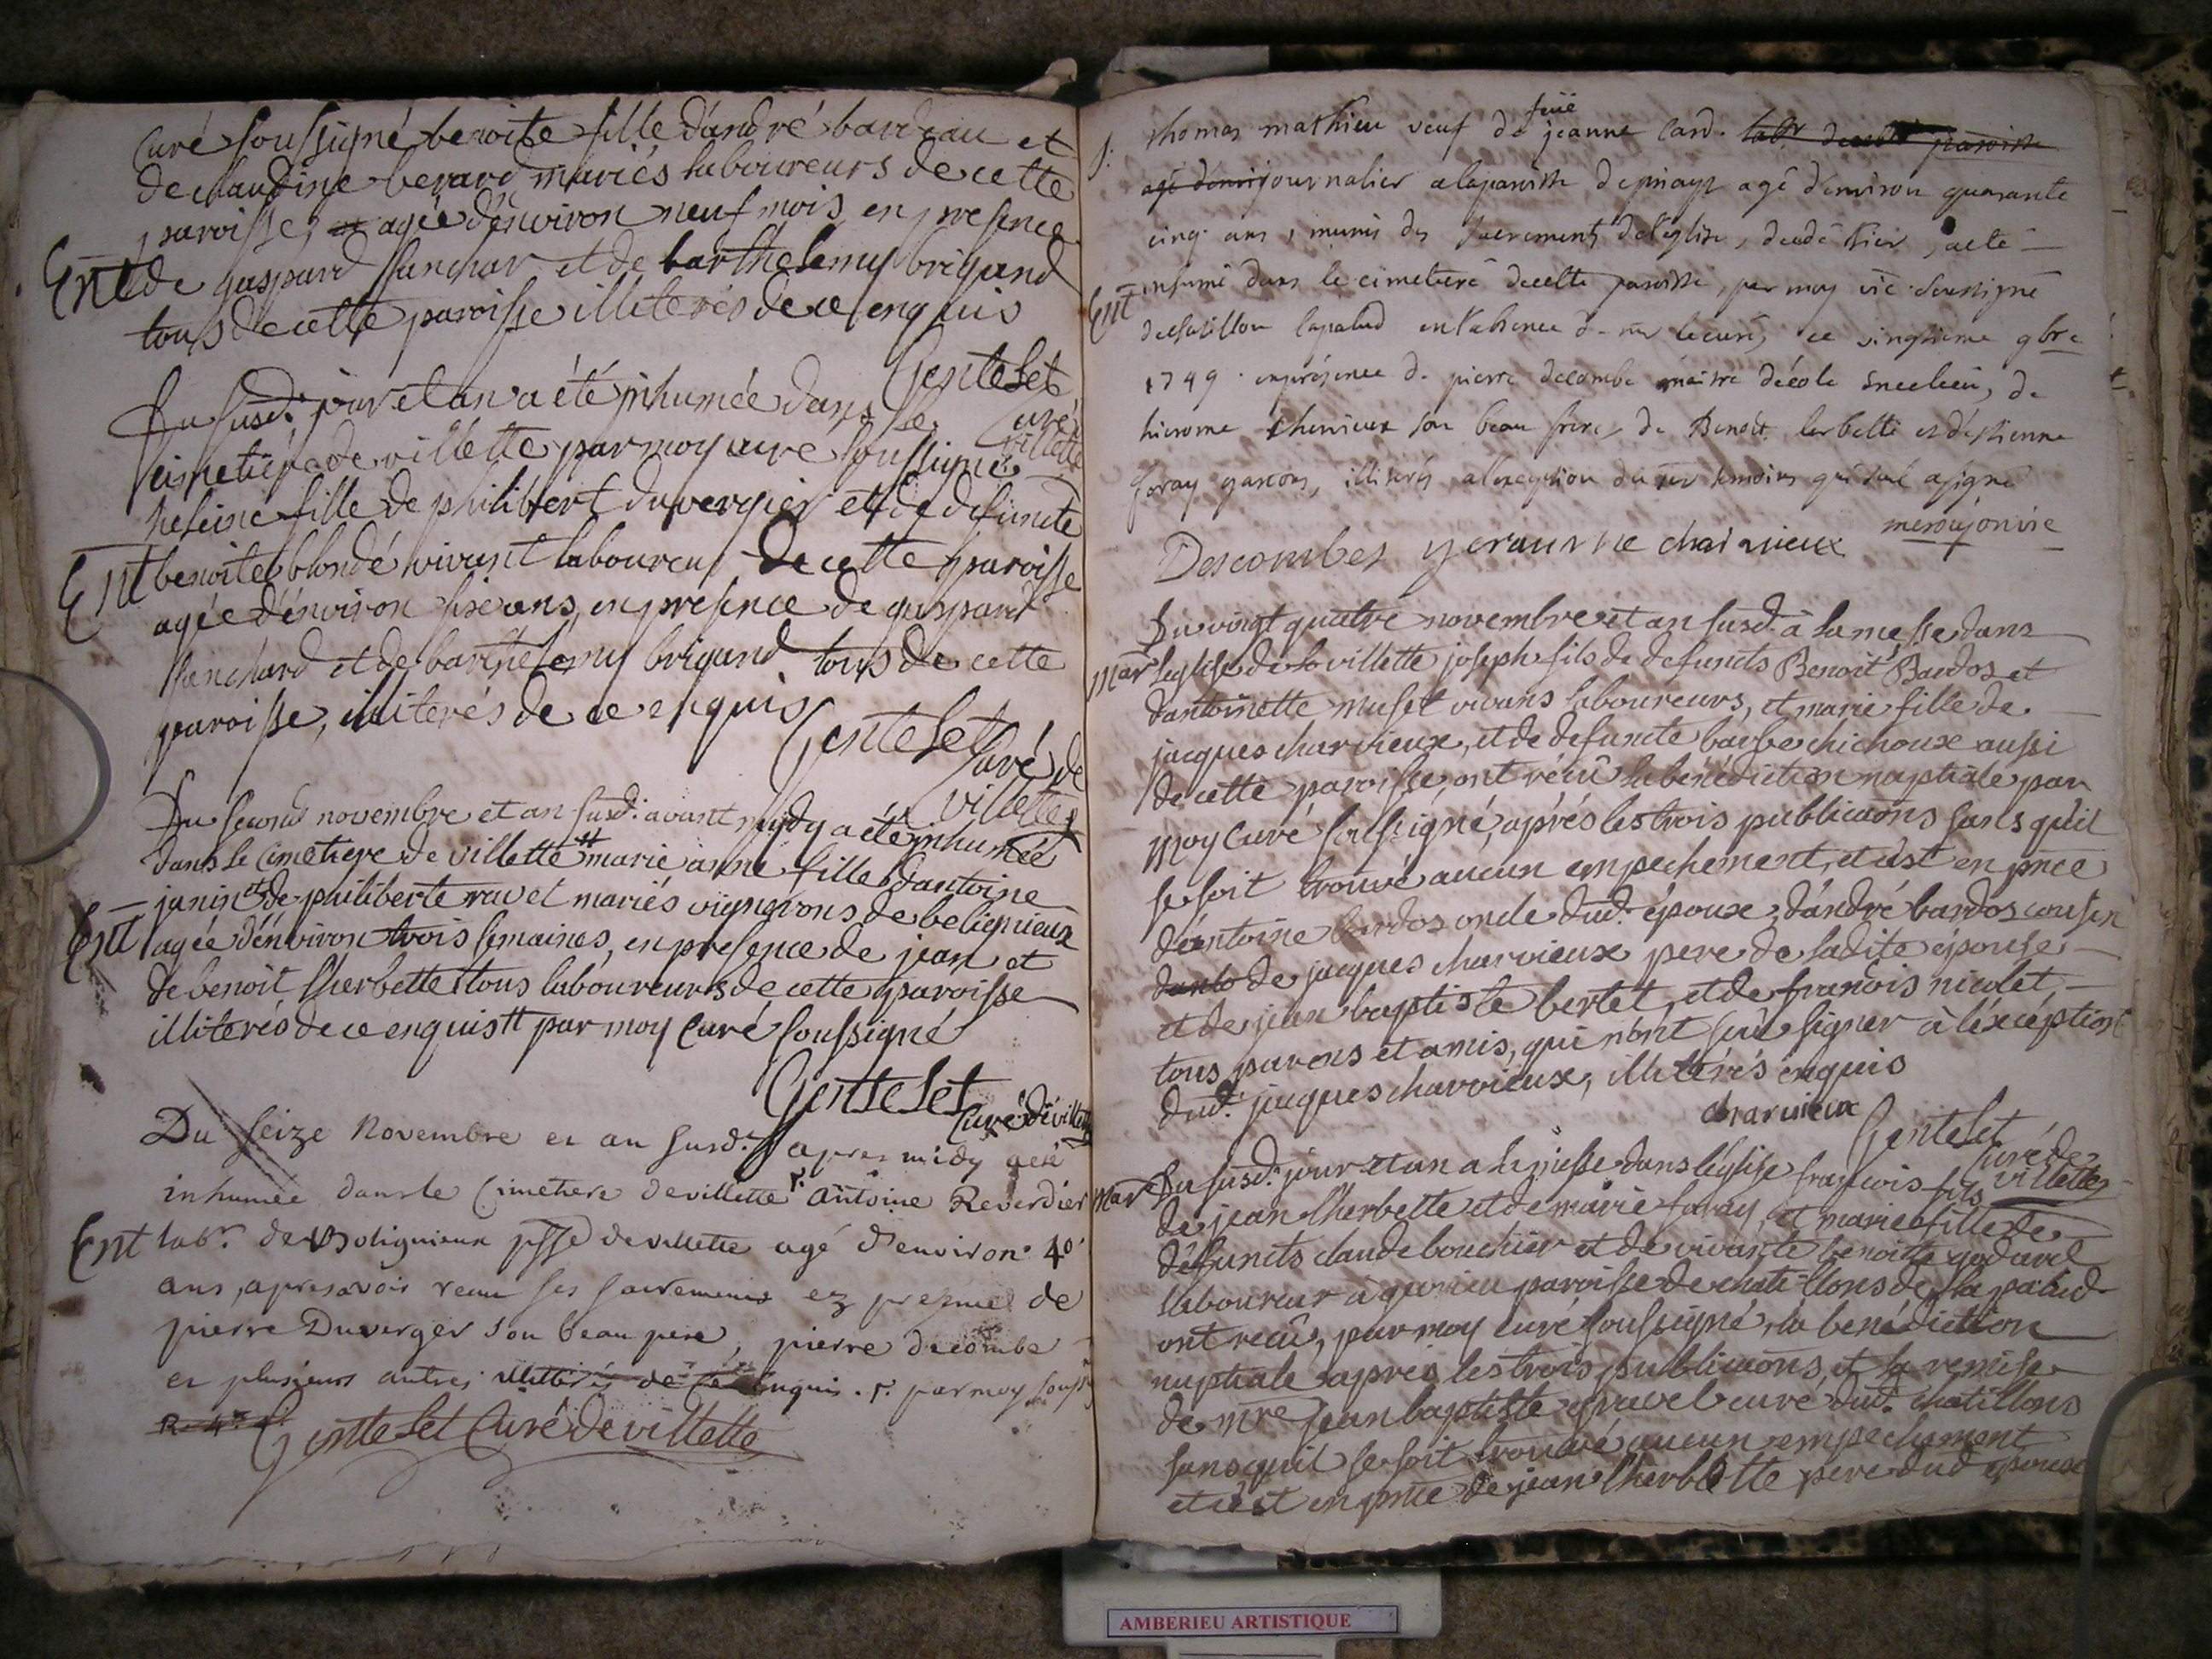 curé soussigné benoite fille d'andré bardeau et
de claudine berard mariés laboureurs de cette
paroisse, agée d'environ neuf mois, en presence
Ent de gaspard et de barthelemy brigand
tous de cette paroisse illiterés de ce enquis
Gentelet
curé
villette
Du susd. jour et an a été inhumée dans le
cimetiere de villette par moy curé soussigné
heleine fille de philibert duvergier et de defuncte
Ent benoite blondé vivant laboureur de cette paroisse
agée d'environ six ans, en presence de gaspard
et de barthelemy brigand tous de cette
paroisse, illiterés de ce enquis
Gentelet
curé de
villette
Du second novembre et an susd. avant midy a été inhumée
dans le cimetiere de villette # marie anne fille d'antoine
janin et de philiberte ravet mariés vignerons de beligneux
Ent agée d'environ trois semaines, en presence de jean et
de benoit lherbette tous laboureurs de cette paroisse
illiterés de ce enquis # par moy curé soussigné
Gentelet
Curé de villette
Du seize Novembre et an susd. apres midy a été
inhumée dans le Cimetiere de villette antoine Reverdier
Ent lab.r de psse de villette agé d'environ 40
ans, apres avoir recu ses sacrements ez presence de
pierre Duverger son beau pere, pierre decombe
et plusieurs autres illitterés de ce enquis . par moy souss
Gentelet Curé de villette
thomas mathieu veuf de feüe jeanne Card. labr de cette paroisse
agé d'envi journalier a la paroisse agé d'environ quarante
cinq ans, munis des sacrements de l'eglise, decedé hier, a eté
Ent inhumé dans le cimetiere de cette paroisse, par moy vic. soussigné
de chatillon lapalud en l'absence de mr le curé, ce vingtieme 9bre
1749. en présence de pierre decombe maitre d'école en ce lieu, de
hierome son beau frere, de Benoit lerbette et d'estienne
foray garcons, illiterés a l'exception du temoins qui seul a signé
Descombes
Du vingt quatre novembre et an susd. à la messe dans
Mar l'eglise de la villette joseph fils de defuncts Benoit Bardos et
d'antoinette muset vivans laboureurs, et marie fille de
jacques charvieux, et de defuncte barbe chichoux aussi
de cette paroisse, ont réçû la bénédiction nuptiale par
Moy Curé soussigné, aprés les trois publicaons sans qu'il
se soit trouvé aucun empechement, et c'est en pnce
d'antoine bardos oncle dud. époux, d'andré bardos cousin
de jacques charvieux pere de ladite épouse
et de jean baptiste bertet, et de françois nicolet,
tous parens et amis, qui n'ont scû signer à l'éxcéption
dud. jacques charvieux, illiterés enquis
charvieux
Gentelet
Curé de
villette
Mar Du susd. jour et an a la messe dans l'église françois fils
de jean lherbette et de marie faray, et marie fille de
défuncts claude bouchier et de vivante benoite godard
laboureur à gevrieu paroisse de chatillons de la palud
ont reçû, par moy curé soussigné, la bénédiction
nuptiale aprés les trois publicaons, et la remise
de mre jean baptiste gravel curé dud. chatillons
sans qu'il se soit trouvé aucun empechement
et c'est en pnce de jean lherbette pere dud. époux
AMBERIEU ARTISTIQUE